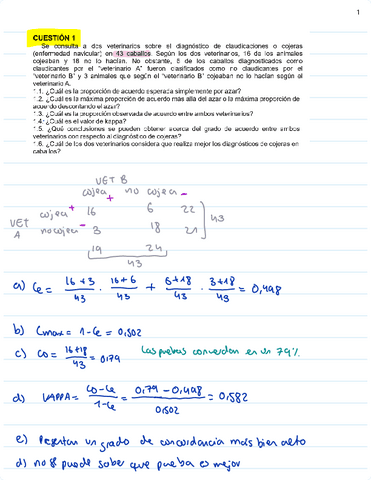 1
CUESTIÓN 1
Se consulta a dos veterinarios sobre el diagnóstico de claudicaciones o cojeras
(enfermedad navicular) en 43 caballos. Según los dos veterinarios, 16 de los animales
cojeaban y 18 no lo hacían. No obstante, 6 de los caballos diagnosticados como
claudicantes por el "veterinario A" fueron clasificados como no claudicantes por el
"veterinario B" y 3 animales que según el "veterinario B" cojeaban no lo hacían según el
veterinario A.
1.1. ¿Cuál es la proporción de acuerdo esperada simplemente por azar?
1.2. ¿Cuál es la máxima proporción de acuerdo más allá del azar o la máxima proporción de
acuerdo descontando el azar?
1.3. ¿Cuál es la proporción observada de acuerdo entre ambos veterinarios?
1.4. ¿Cuál es el valor de kappa?
1.5. ¿Qué conclusiones se pueden obtener acerca del grado de acuerdo entre ambos
veterinarios con respecto al diagnóstico de cojeras?
1.6. ¿Cuál de los dos veterinarios considera que realiza mejor los diagnósticos de cojeras en
caballos?
VET B
cojea + no cojea -
VET A
cojea + 16 6 22
no cojea - 3 18 21
43
19 24
43
a) Ce = 16+3/43 · 16+6/43 + 6+18/43 · 3+18/43 = 0,498
b) Cmax = 1-Ce = 0,502
c) Co = 16+18/43 = 0,79 Las pruebas concuerdan en un 79%
d) KAPPA = Co-Ce/1-Ce = 0,79-0,498/0,502 = 0,582
e) Presentan un grado de concordancia más bien alto
d) no se puede saber que prueba es mejor